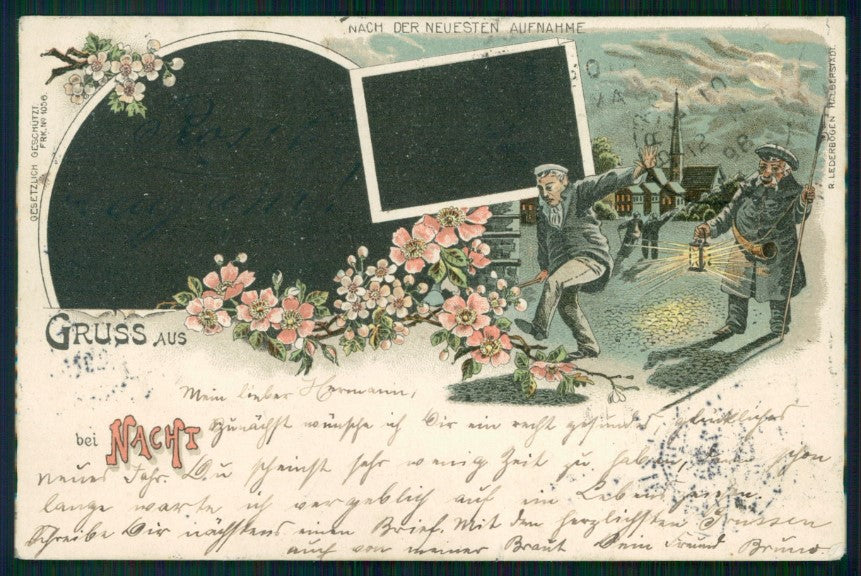 NACH DER NEUESTEN AUFNAHME
GESETZLICH GESCHÜTZT
FRK. No 1056.
R. LEDERBOGEN HALBERSTADT.
GRUSS AUS
bei NACHT
Mein lieber Hermann,
Zunächst wünsche ich Dir ein recht gesundes, glückliches
neues Jahr. Du scheinst sehr wenig Zeit zu haben, denn schon
lange warte ich vergeblich auf ein Lebenszeichen.
Schreibe Dir nächstens einen Brief. Mit den herzlichsten Grüssen
auch von meiner Braut Dein Freund Bruno.